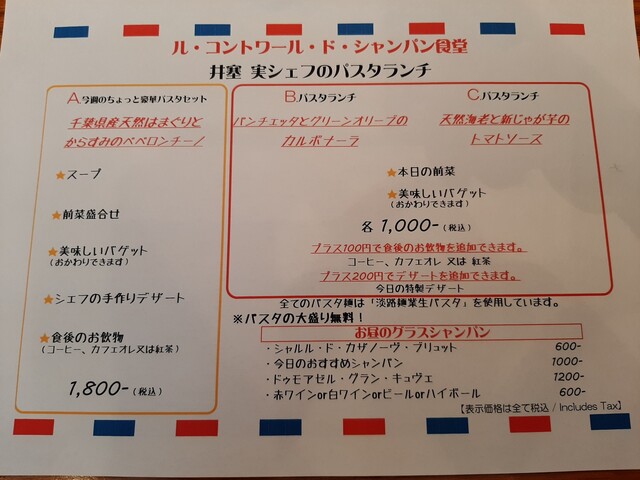 ル・コントワール・ド・シャンパン食堂
井塞 実シェフのパスタランチ
A.今週のちょっと豪華パスタセット
千葉県産天然はまぐりと
からすみのペペロンチーノ
★スープ
★前菜盛合せ
★美味しいバゲット
(おかわりできます)
★シェフの手作りデザート
★食後のお飲物
(コーヒー、カフェオレ又は紅茶)
1,800-(税込)
B.パスタランチ
パンチェッタとグリーンオリーブの
カルボナーラ
C.パスタランチ
天然海老と新じゃが芋の
トマトソース
★本日の前菜
★美味しいバゲット
(おかわりできます)
各 1,000-(税込)
プラス100円で食後のお飲物を追加できます。
コーヒー、カフェオレ 又は 紅茶
プラス200円でデザートを追加できます。
今日の特製デザート
全てのパスタ麺は「淡路麺業生パスタ」を使用しています。
※パスタの大盛り無料!
お昼のグラスシャンパン
・シャルル・ド・カザノーヴ・ブリュット 600-
・今日のおすすめシャンパン 1000-
・ドゥモアゼル・グラン・キュヴェ 1200-
・赤ワインor白ワインorビールorハイボール 600-
【表示価格は全て税込 / Includes Tax】